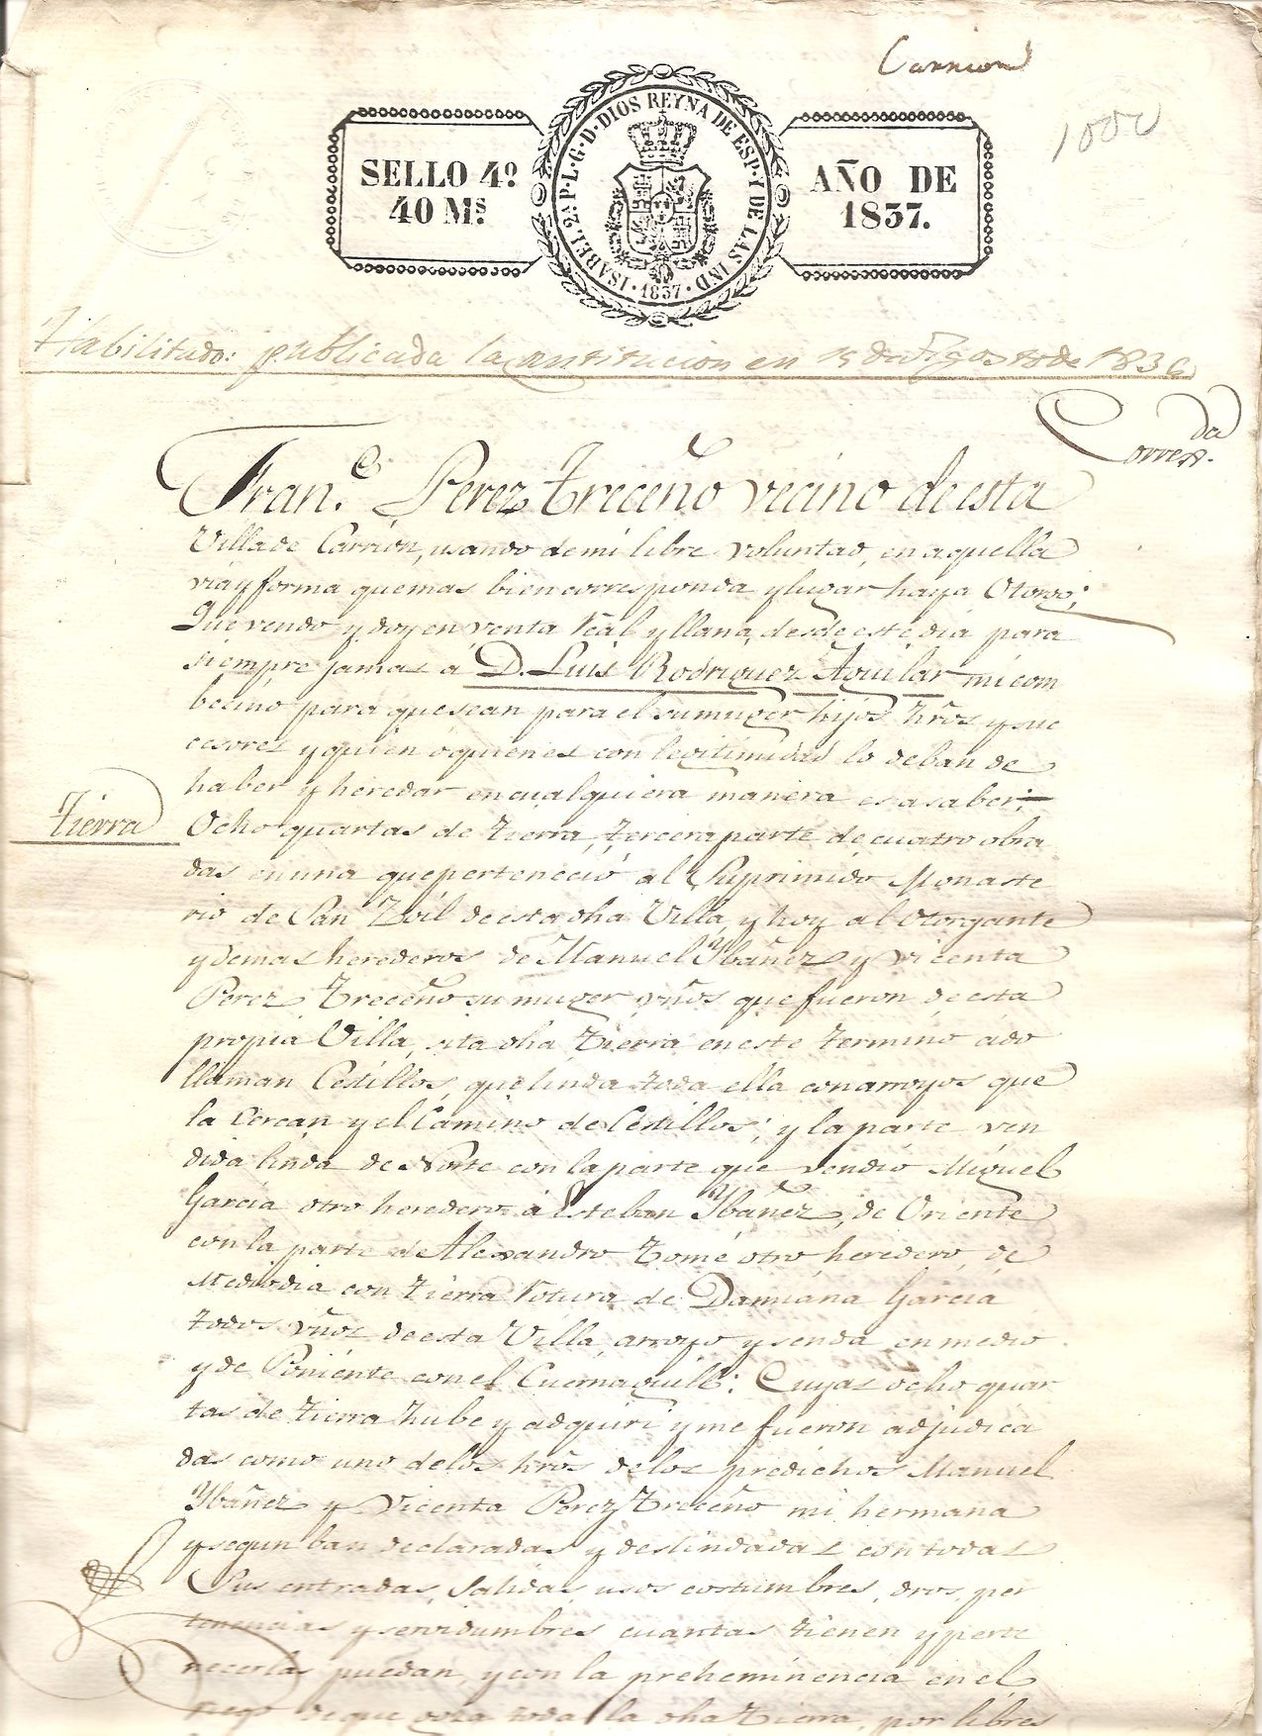 Carrion
1000
SELLO 4º
40 Mˢ.
ISABEL 2ª. P. L. G. D. DIOS REYNA DE ESP. Y DE LAS IND.
· 1837 ·
AÑO DE
1837.
Habilitado: publicada la constitucion en 15 de Agosto de 1836
Corresda.
Fran.co Perez Treceño vecino de esta
Villa de Carrion, usando de mi libre voluntad, en aquella
via y forma que mas bien corresponda y lugar haya Otorgo;
Que vendo y doy en venta Real y llana, desde este dia para
siempre jamas á D. Luis Rodriguez Aguilar mi com
becino para que sean para el su muger hijos hros y suc
cesores y quien ó quienes con legitimidad lo deban de
haber y heredar en cualquiera manera es a saber:
Tierra
Ocho quartas de tierra, tercera parte de cuatro obra
das en una que perteneció al Suprimido Monaste
rio de San Zoil de esta dha Villa, y hoy al Otorgante
y demas herederos de Manuel Ybañez y Vicenta
Perez Treceño su muger vños que fueron de esta
propia Villa, sita dha tierra en este termino ádo
llaman Cestillos, que linda toda ella con arroyos que
la Cercan y el Camino de Cestillos; y la parte ven
dida linda de Norte con la parte que vendió Miguel
Garcia otro heredero á Esteban Ybañez, de Oriente
con la parte de Alexandro Tomé otro heredero, de
Mediodia con tierra Rotura de Damiana Garcia
todos vños de esta Villa, arroyo y senda en medio
y de Poniente con el Cuernaguillo: Cuyas ocho quar
tas de tierra hube y adquiri y me fueron adjudica
das como uno de los hros de los predichos Manuel
Ybañez y Vicenta Perez Treceño mi hermana
y segun ban declaradas y deslindadas con todas
Sus entradas, Salidas, usos costumbres, dros, per
tenencias y servidumbres cuantas tienen y perte
necerlas puedan, y con la preheminencia en el
de que goza toda la dha tierra, por libres